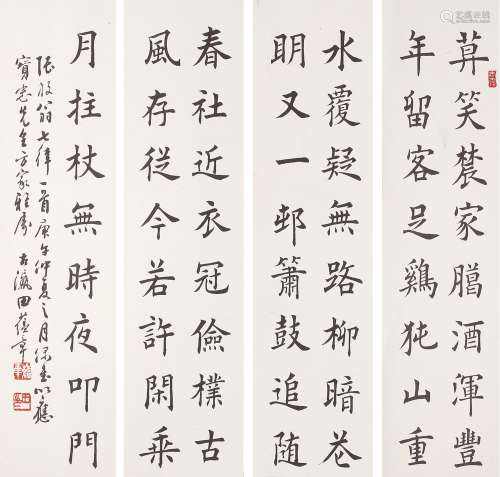 莫笑農家臈酒渾豐
年留客足鷄㹠山重
水覆疑無路柳暗花
明又一邨簫鼓追随
春社近衣冠儉樸古
風存從今若許閑乗
月拄杖無時夜叩門
陸放翁七律一首庚午仲夏之月以應
寶憲先生方家雅屬 古瀛田蘊章